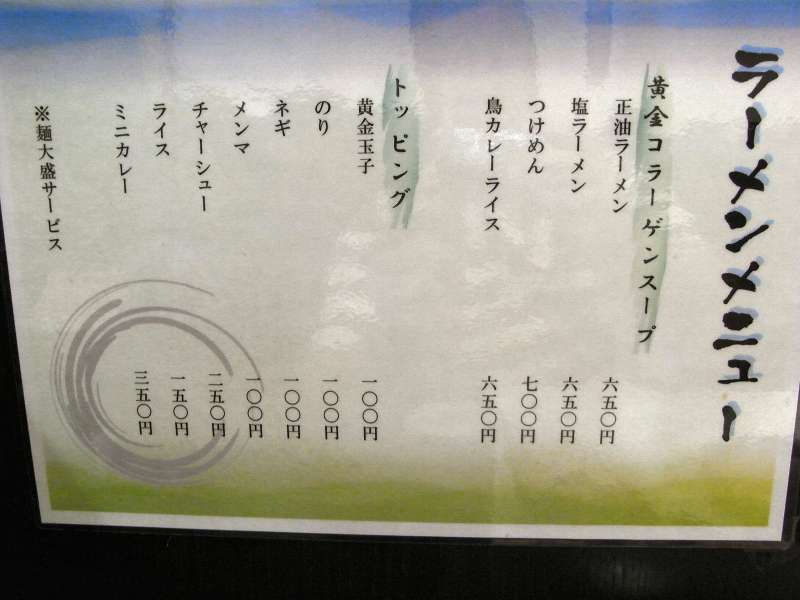 ラーメンメニュー
黄金コラーゲンスープ
正油ラーメン 六五〇円
塩ラーメン 六五〇円
つけめん 七〇〇円
鳥カレーライス 六五〇円
トッピング
黄金玉子 一〇〇円
のり 一〇〇円
ネギ 一〇〇円
メンマ 一〇〇円
チャーシュー 二五〇円
ライス 一五〇円
ミニカレー 三五〇円
※麺大盛サービス